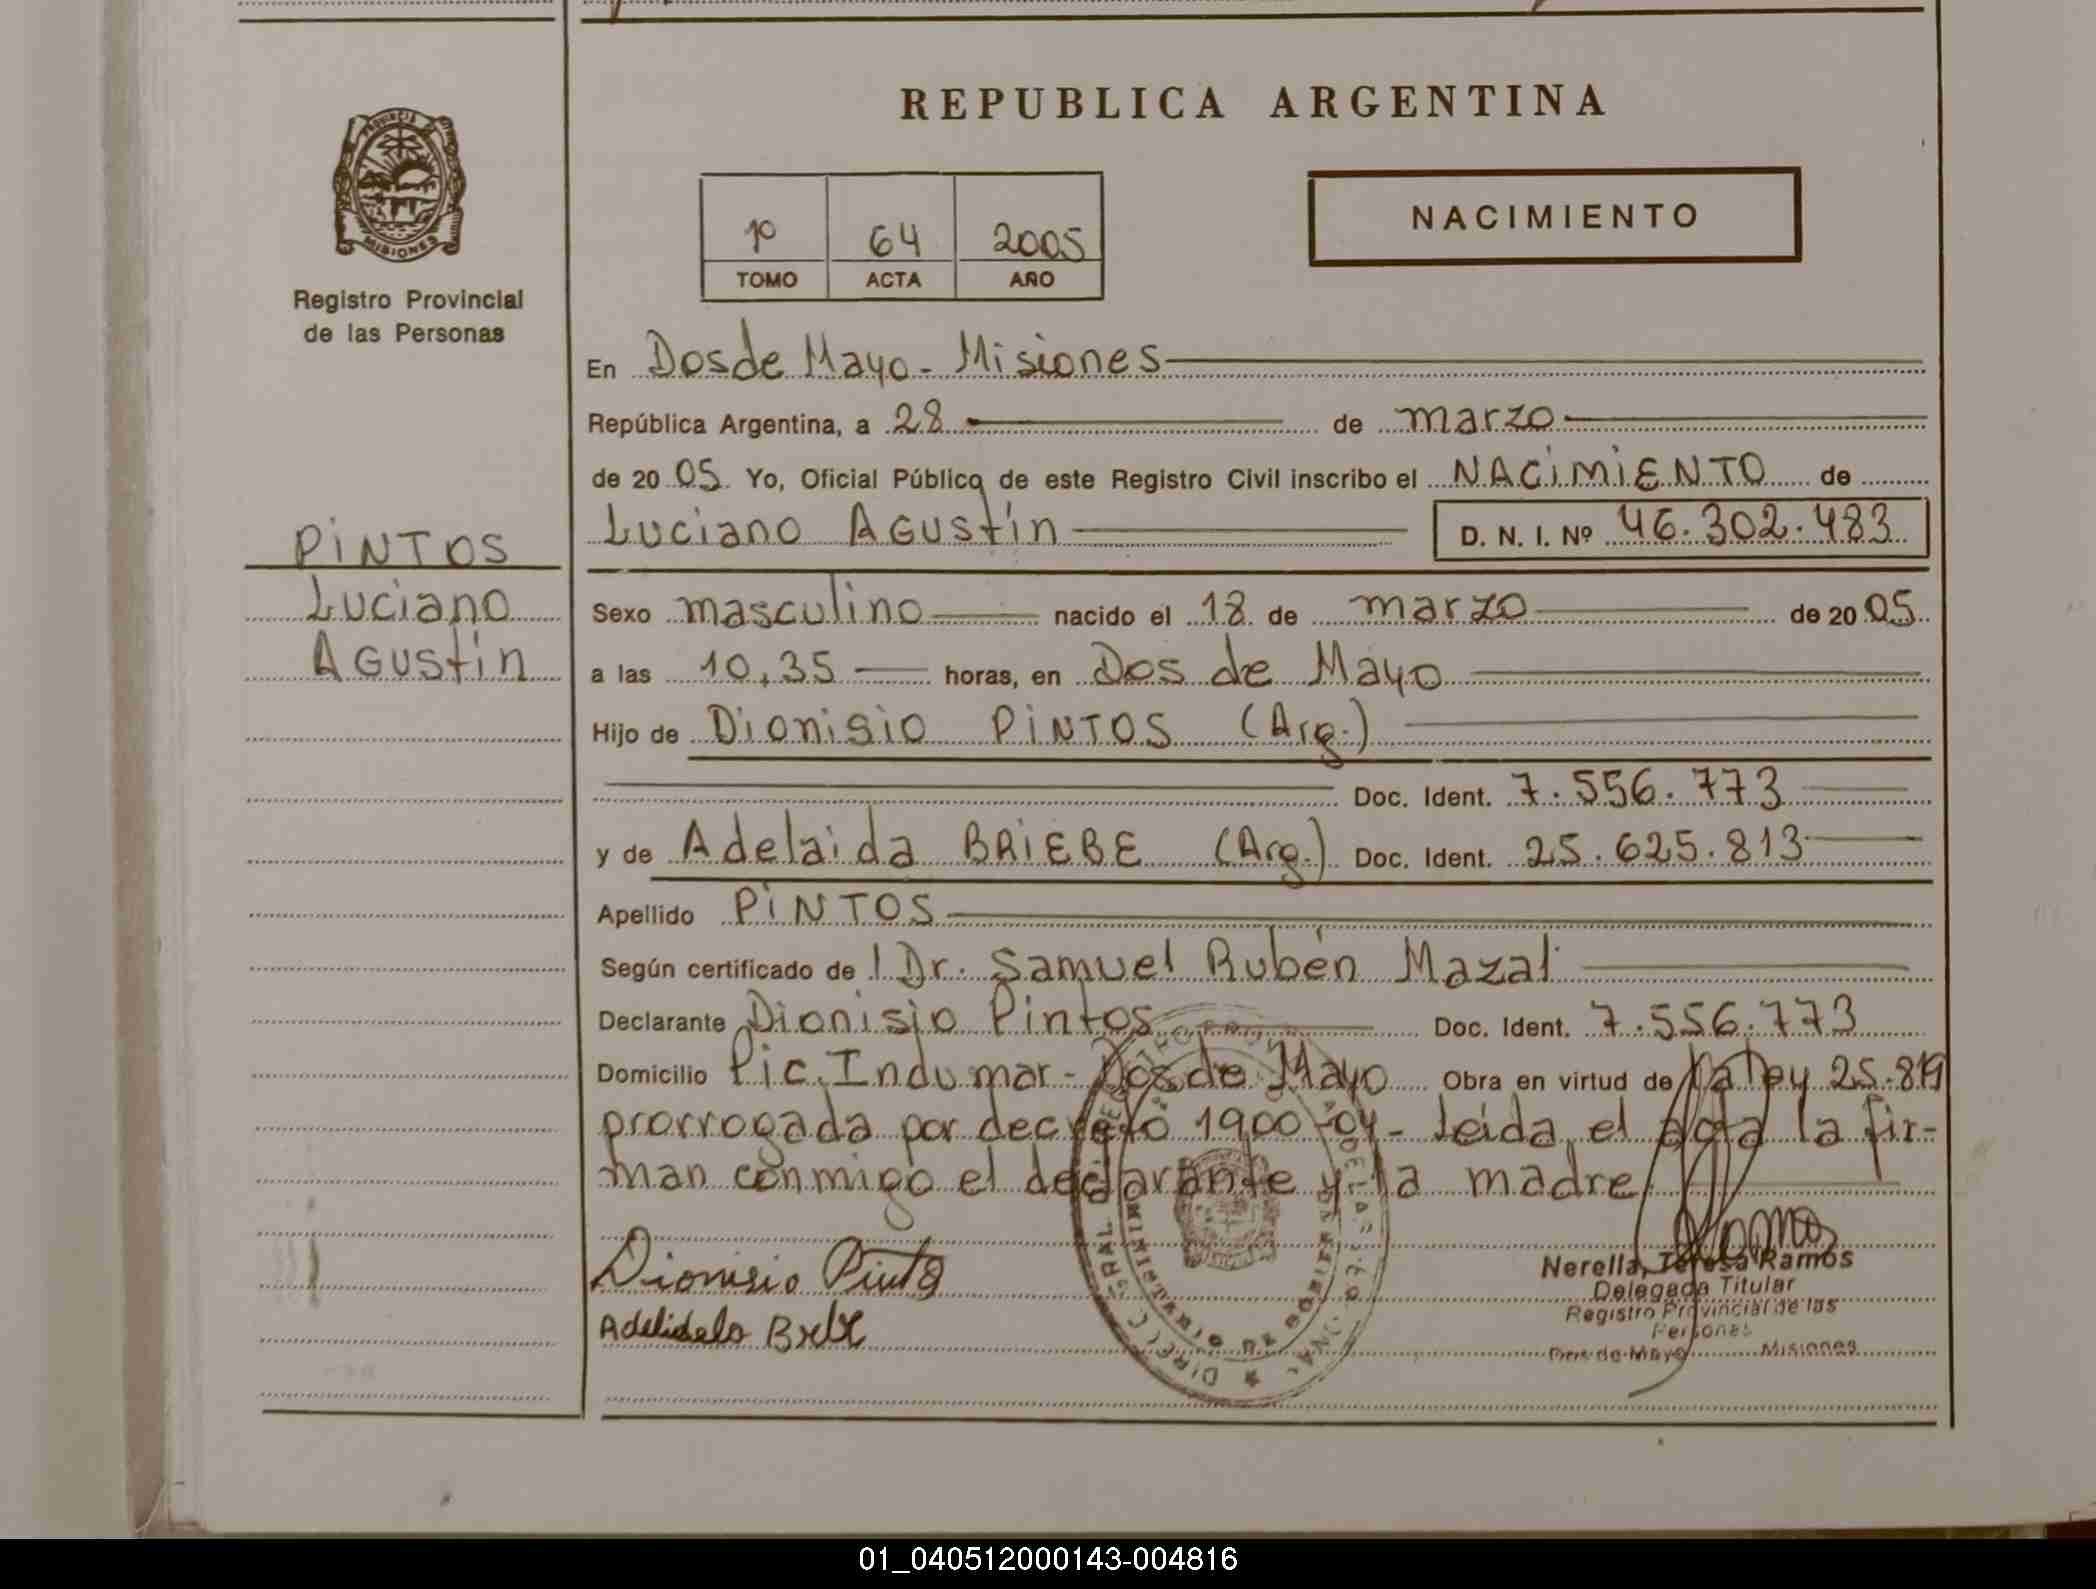 REPUBLICA ARGENTINA
PROVINCIA
MISIONES
Registro Provincial
de las Personas
1º 64 2005
TOMO ACTA AÑO
NACIMIENTO
En Dos de Mayo - Misiones
República Argentina, a 28 de marzo
de 2005. Yo, Oficial Público de este Registro Civil inscribo el NACIMIENTO de
PINTOS
Luciano Agustín D. N. I. Nº 46.302.483
Luciano
Agustín
Sexo masculino nacido el 18 de marzo de 2005.
a las 10,35 horas, en Dos de Mayo
Hijo de Dionisio PINTOS (Arg.)
Doc. Ident. 7.556.773
y de Adelaida BRIEBE (Arg.) Doc. Ident. 25.625.813
Apellido PINTOS
Según certificado de l Dr. Samuel Rubén Mazal
Declarante Dionisio Pintos Doc. Ident. 7.556.773
Domicilio Pic. Indumar - Dos de Mayo Obra en virtud de la ley 25.819
prorrogada por decreto 1900-04 - leída el acta la fir-
man conmigo el declarante y la madre
Dionisio Pinto
Nerella, Teresa Ramos
Delegada Titular
Registro Provincial de las
Personas
Dos de Mayo Misiones
01_040512000143-004816